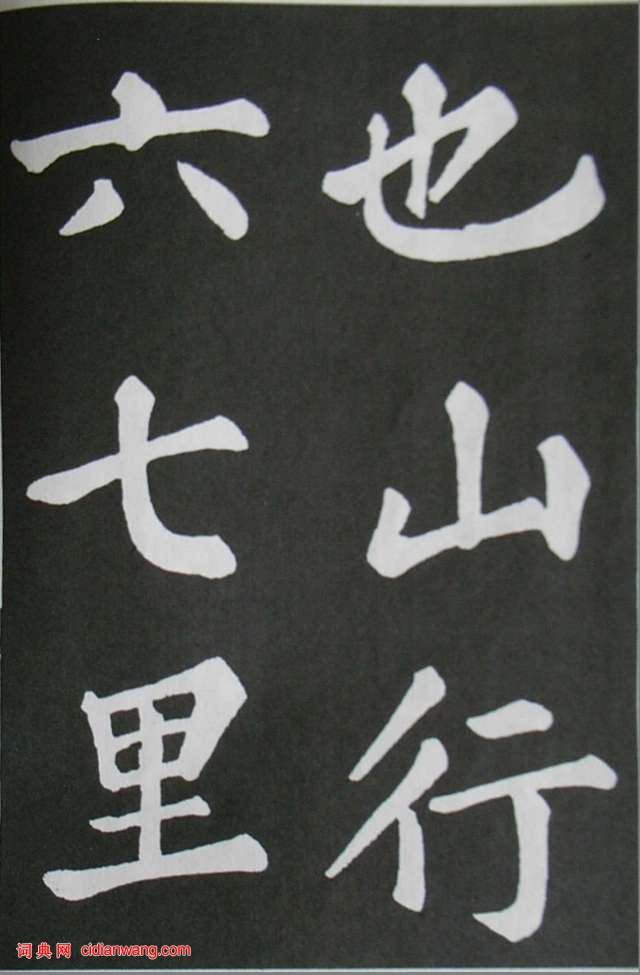 也山行
六七里
词典网 cidianwang.com